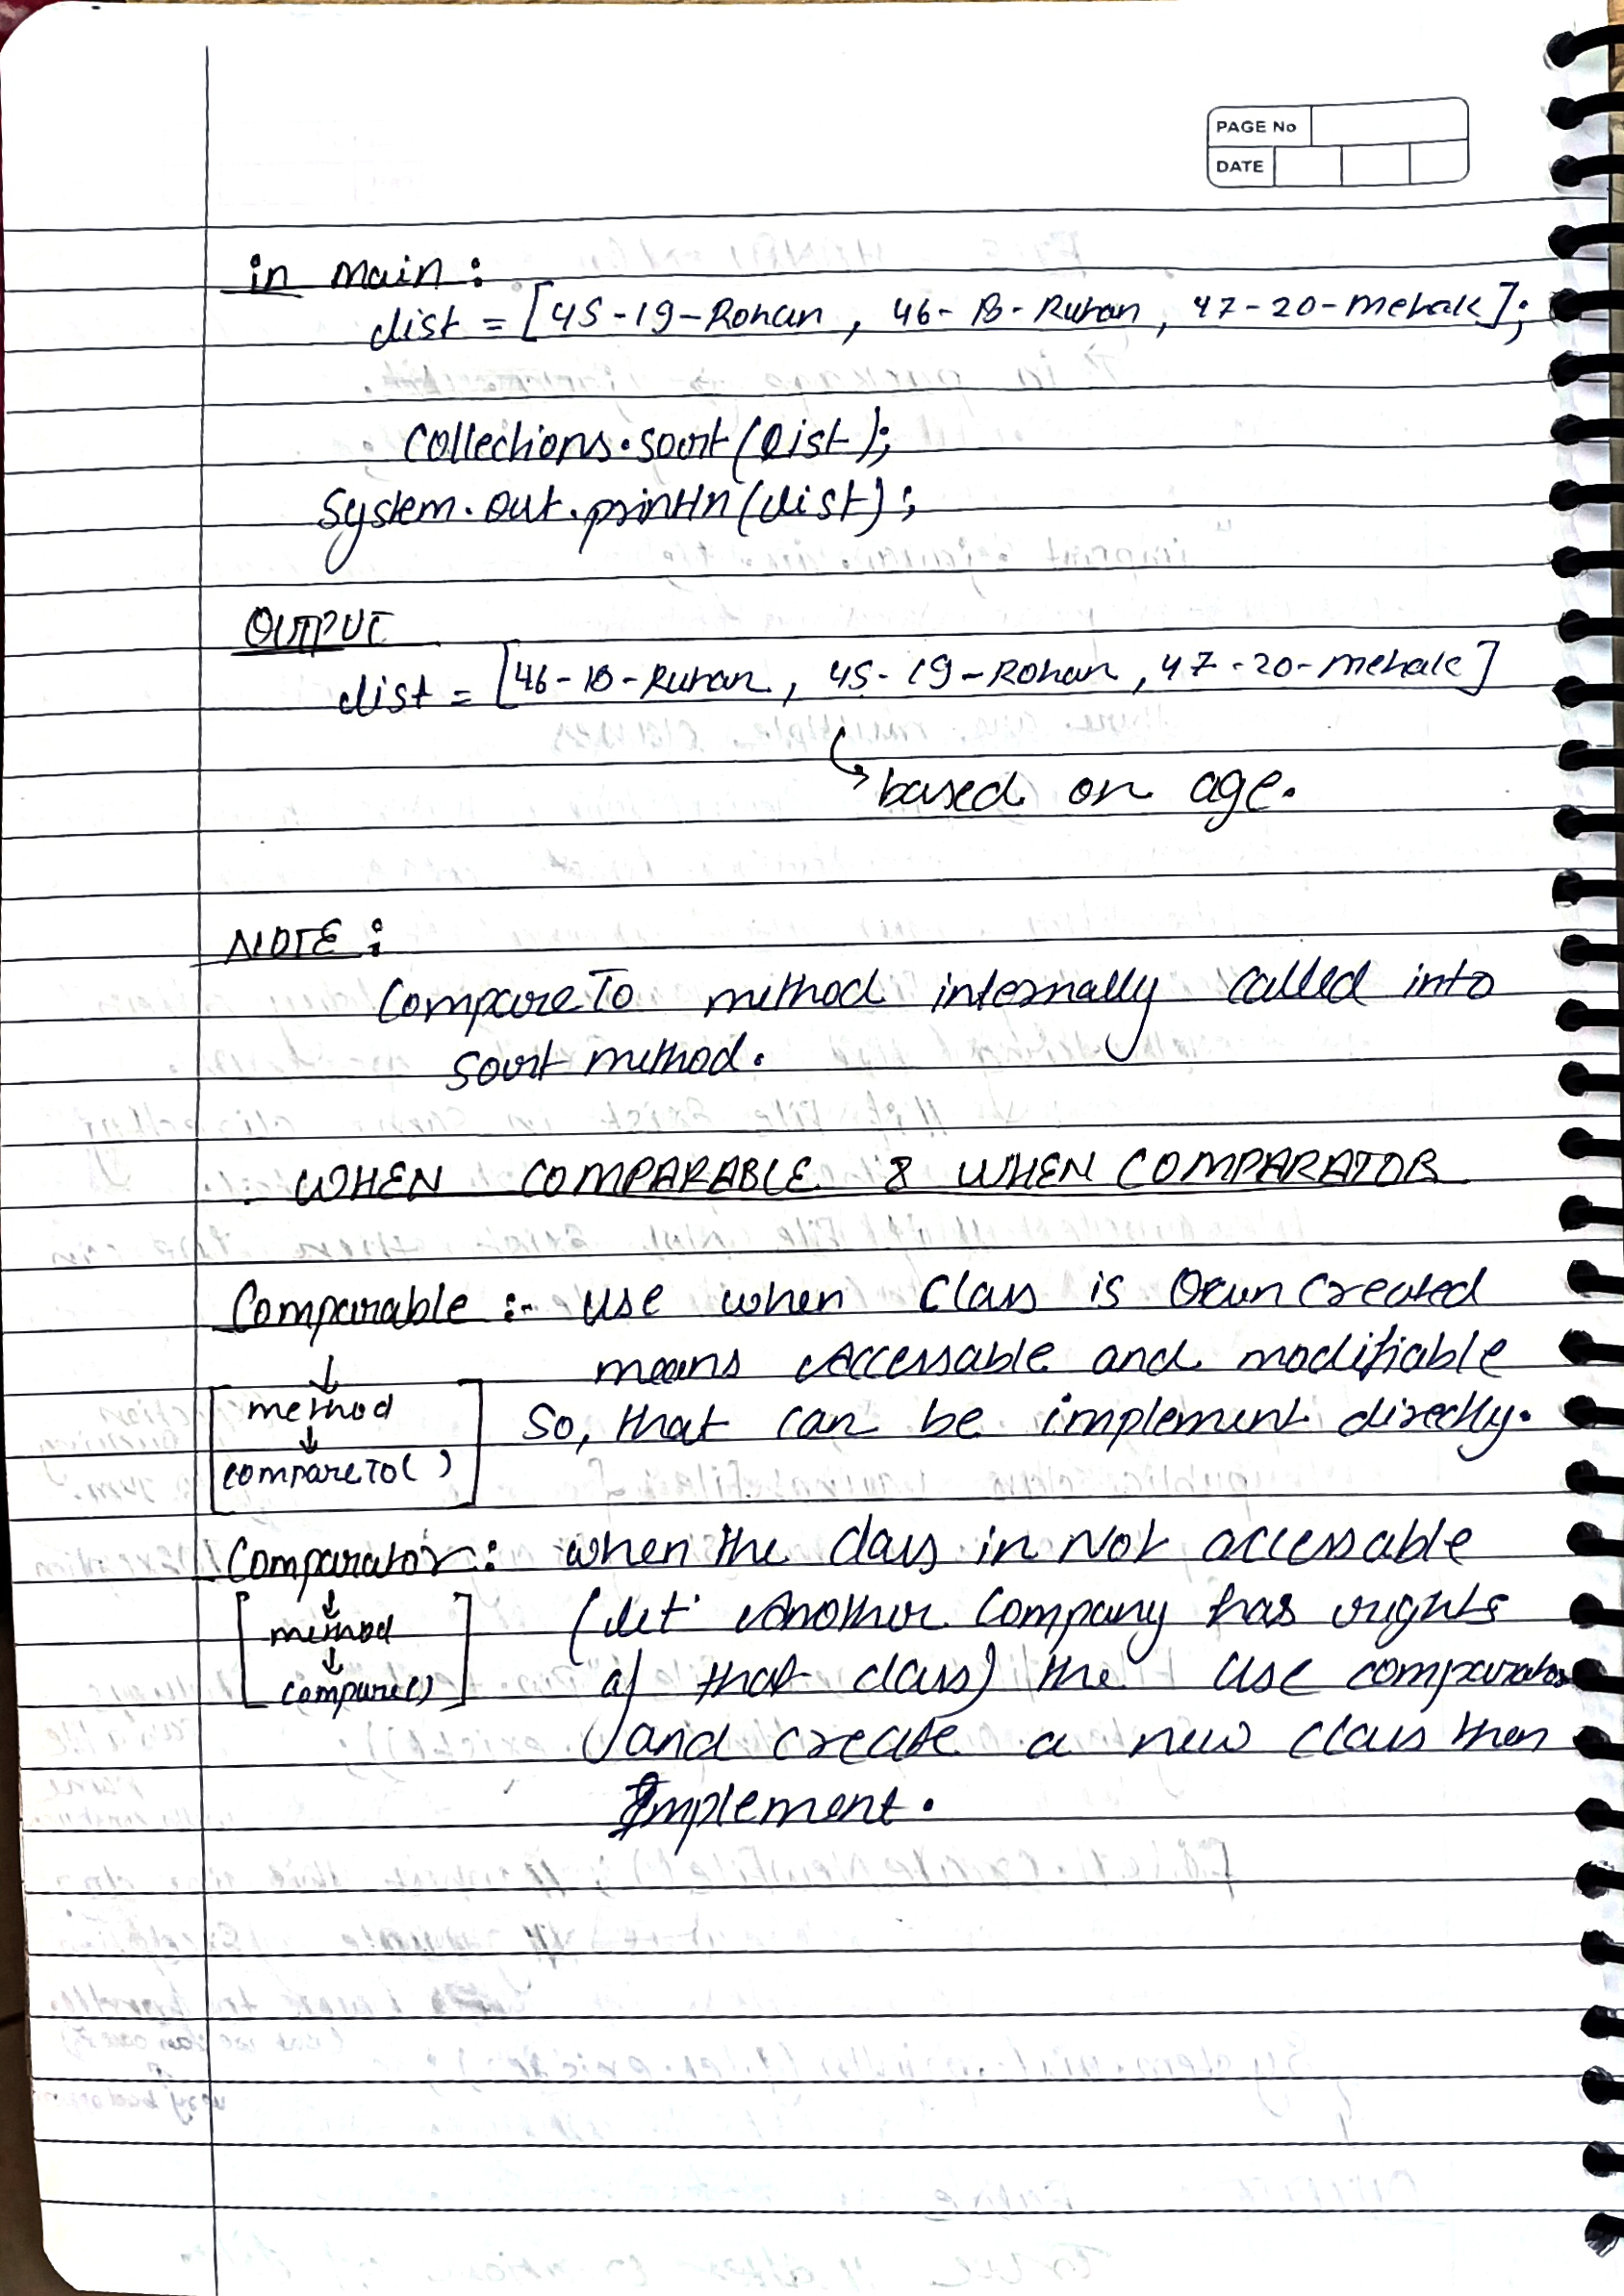 PAGE No
DATE
in main :
list = [45-19-Rohan , 46-18-Ruhan , 47-20-Mehak];
Collections.sort(list);
System.out.println(list);
OUTPUT
list = [46-18-Ruhan , 45-19-Rohan , 47-20-Mehak]
based on age.
NOTE :
CompareTo method internally called into
sort method.
WHEN COMPARABLE & WHEN COMPARATOR
Comparable :- Use when Class is Own Created
means Accessable and modifiable
method So, that can be implement directly.
compareTo()
Comparator : When the class in Not accessable
method (let Another Company has rights
compare() of that class) the Use comparator
and create a new class then
Implement.